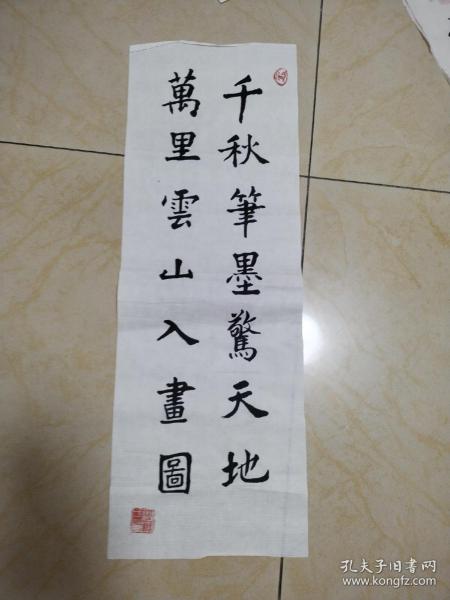 千秋筆墨驚天地
萬里雲山入畫圖
孔夫子旧书网
www.kongfz.com